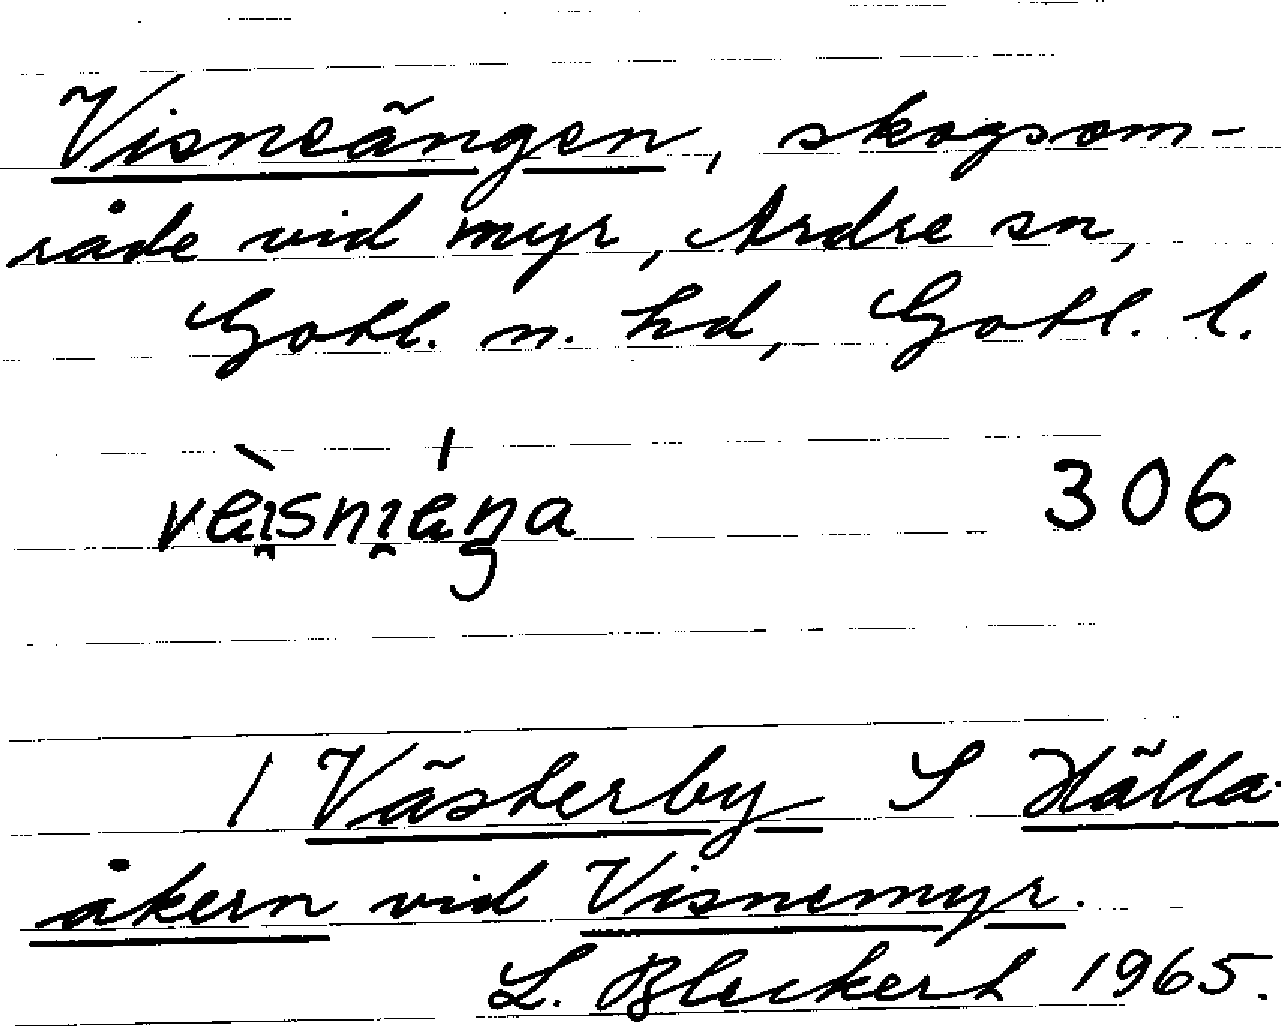 Visneängen, skogsom-
råde vid myr, Ardre sn,
Gotl. n. hd, Gotl. l.
vèi̯sni̯éŋa 306
1 Västerby S Hälla-
åkern vid Visnemyr.
L. Bleckert 1965.